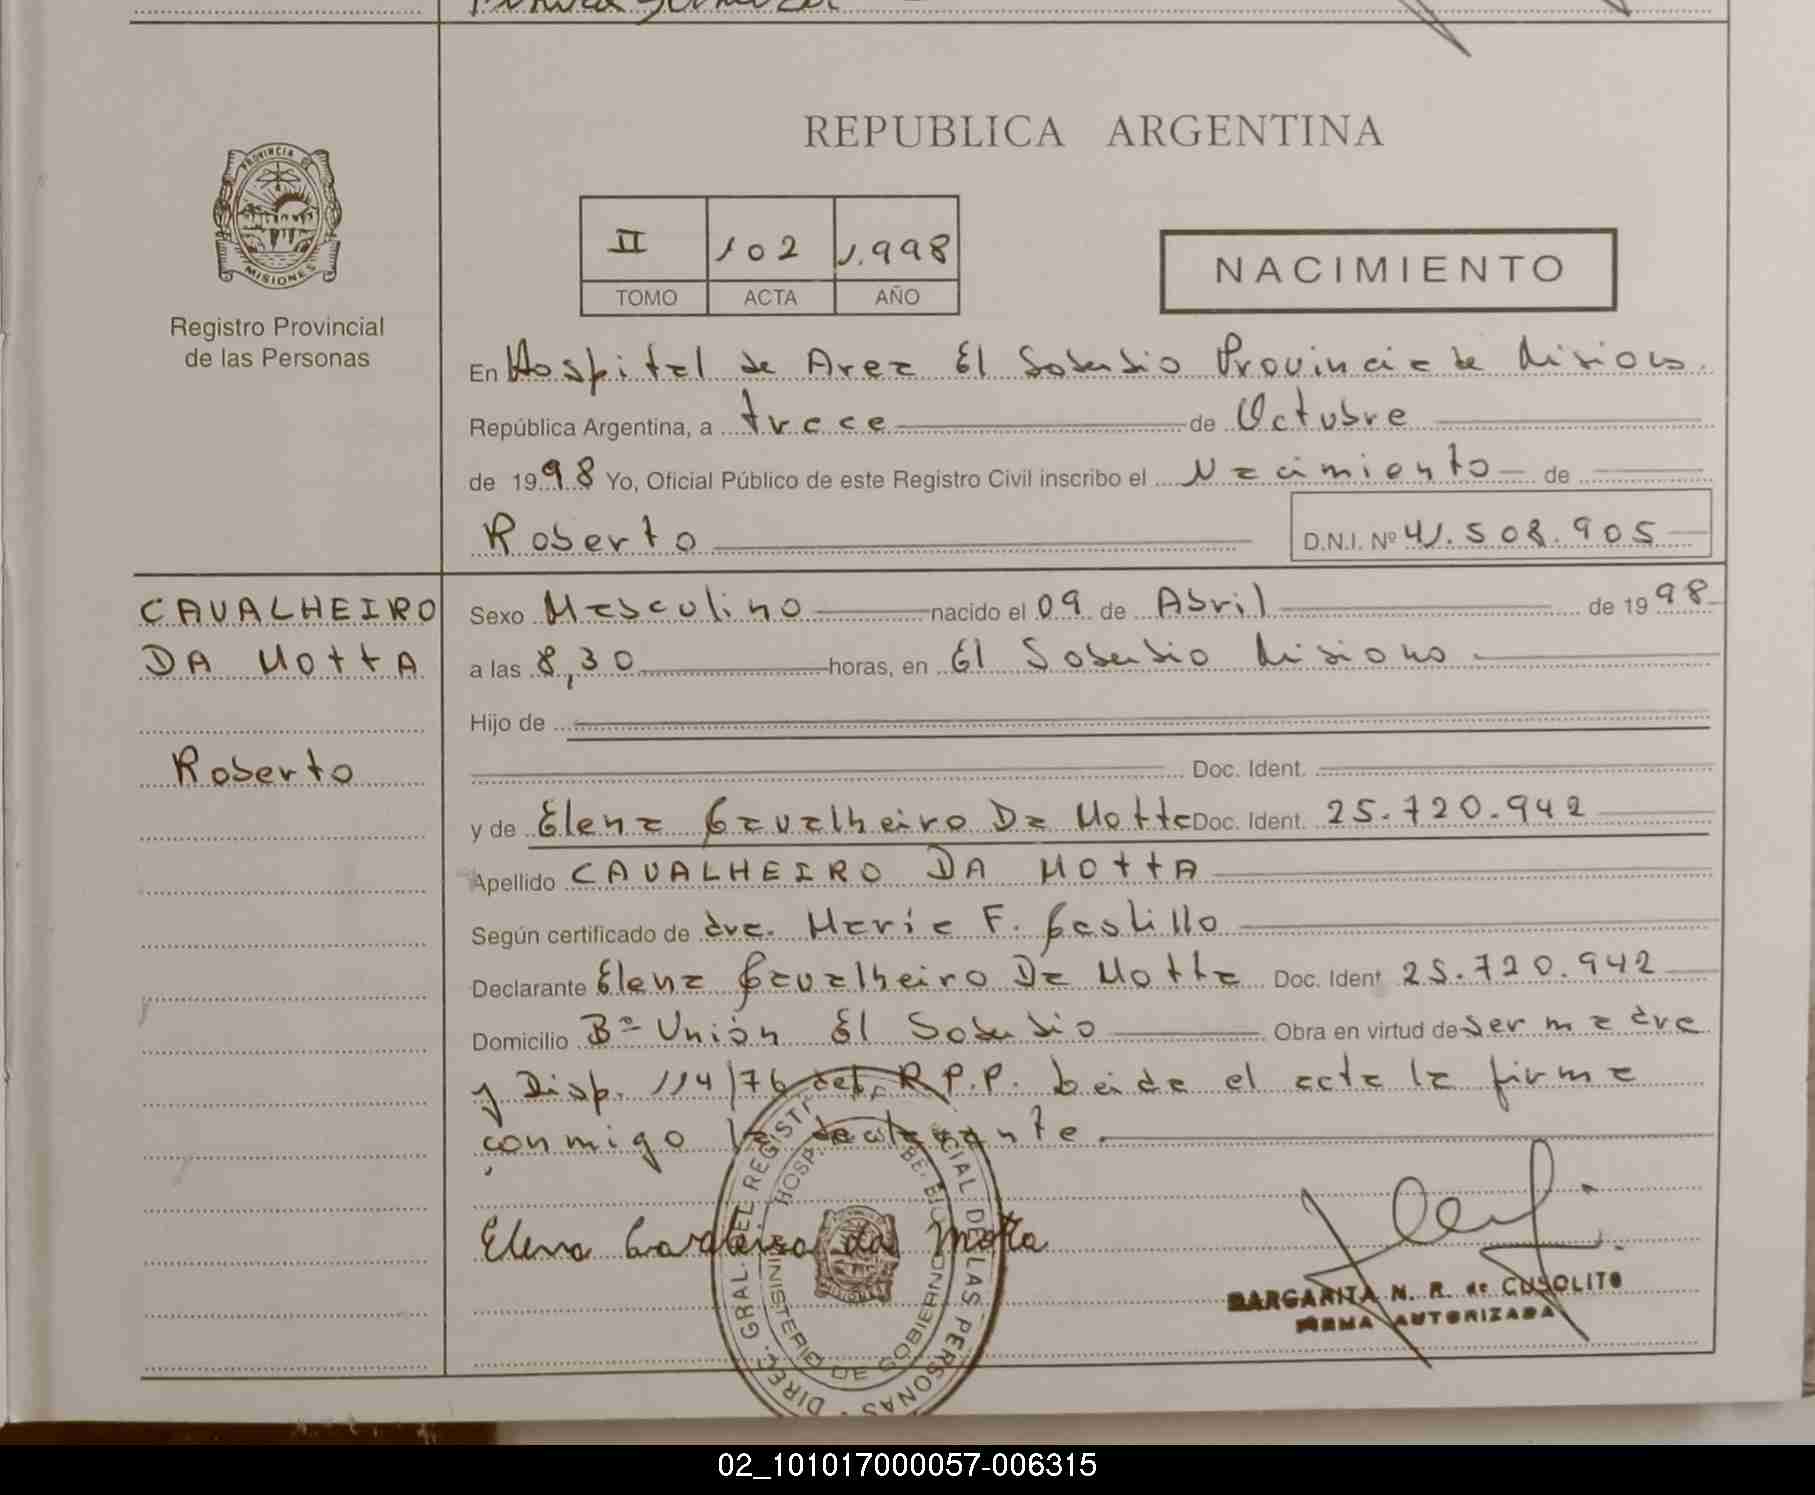 REPUBLICA ARGENTINA
PROVINCIA DE
MISIONES
Registro Provincial
de las Personas
II 102 1.998
TOMO ACTA AÑO
NACIMIENTO
En Hospital de Area El Soberbio Provincia de Misiones.
República Argentina, a trece de Octubre
de 1998 Yo, Oficial Público de este Registro Civil inscribo el Nacimiento de
Roberto D.N.I. Nº 41.508.905
CAVALHEIRO
DA MOTTA
Roberto
Sexo Masculino nacido el 09 de Abril de 1998
a las 8,30 horas, en El Soberbio Misiones
Hijo de
Doc. Ident.
y de Elena Cavalheiro Da Motta Doc. Ident. 25.720.942
Apellido CAVALHEIRO DA MOTTA
Según certificado de dra. María F. Castillo
Declarante Elena Cavalheiro Da Motta Doc. Ident. 25.720.942
Domicilio Bº Unión El Soberbio Obra en virtud de ser madre
y Disp. 114/76 del R.P.P. Leida el acta la firma
conmigo la declarante.
Elena Cavaleiro da Motta
DIREC. GRAL. DEL REGISTRO PROVINCIAL DE LAS PERSONAS
MINISTERIO DE GOBIERNO
HOSP.
MARGARITA N. R. de CUSOLITO
FIRMA AUTORIZADA
02_101017000057-006315